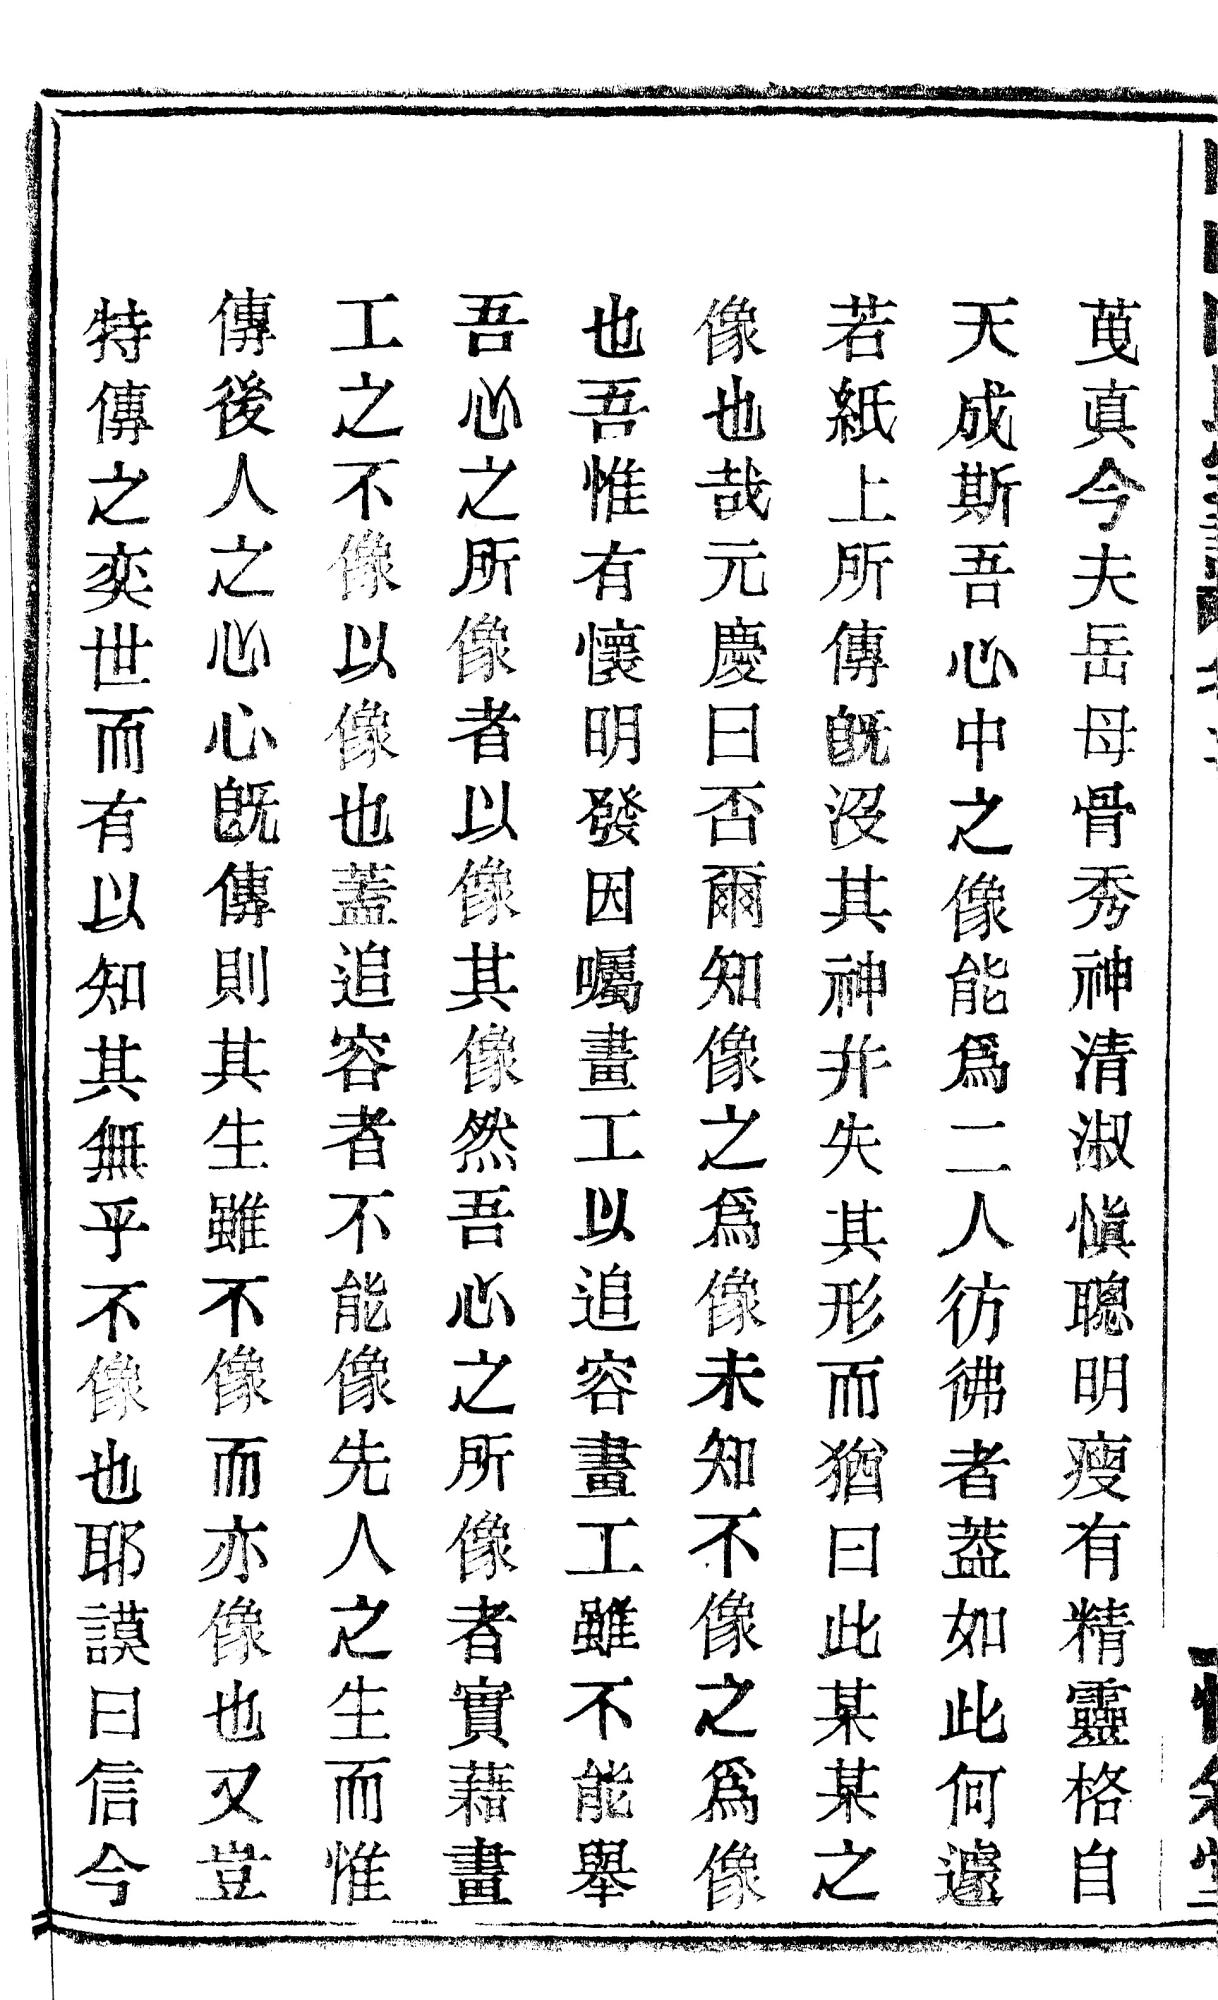 真今夫岳母骨秀神清淑愼聰明瘦有精靈格自
天成斯吾心中之像能爲二人彷彿者葢如此何遽
若紙上所傳旣沒其神幷失其形而猶曰此某某之
像也哉元慶曰否爾知像之爲像未知不像之爲像
也吾惟有懷明發因囑畫工以追容畫工雖不能舉
吾心之所像者以像其像然吾心之所像者實藉畫
工之不像以像也蓋追容者不能像先人之生而惟
傳後人之心心旣傳則其生雖不像而亦像也又豈
特傳之奕世而有以知其無乎不像也耶謨曰信今